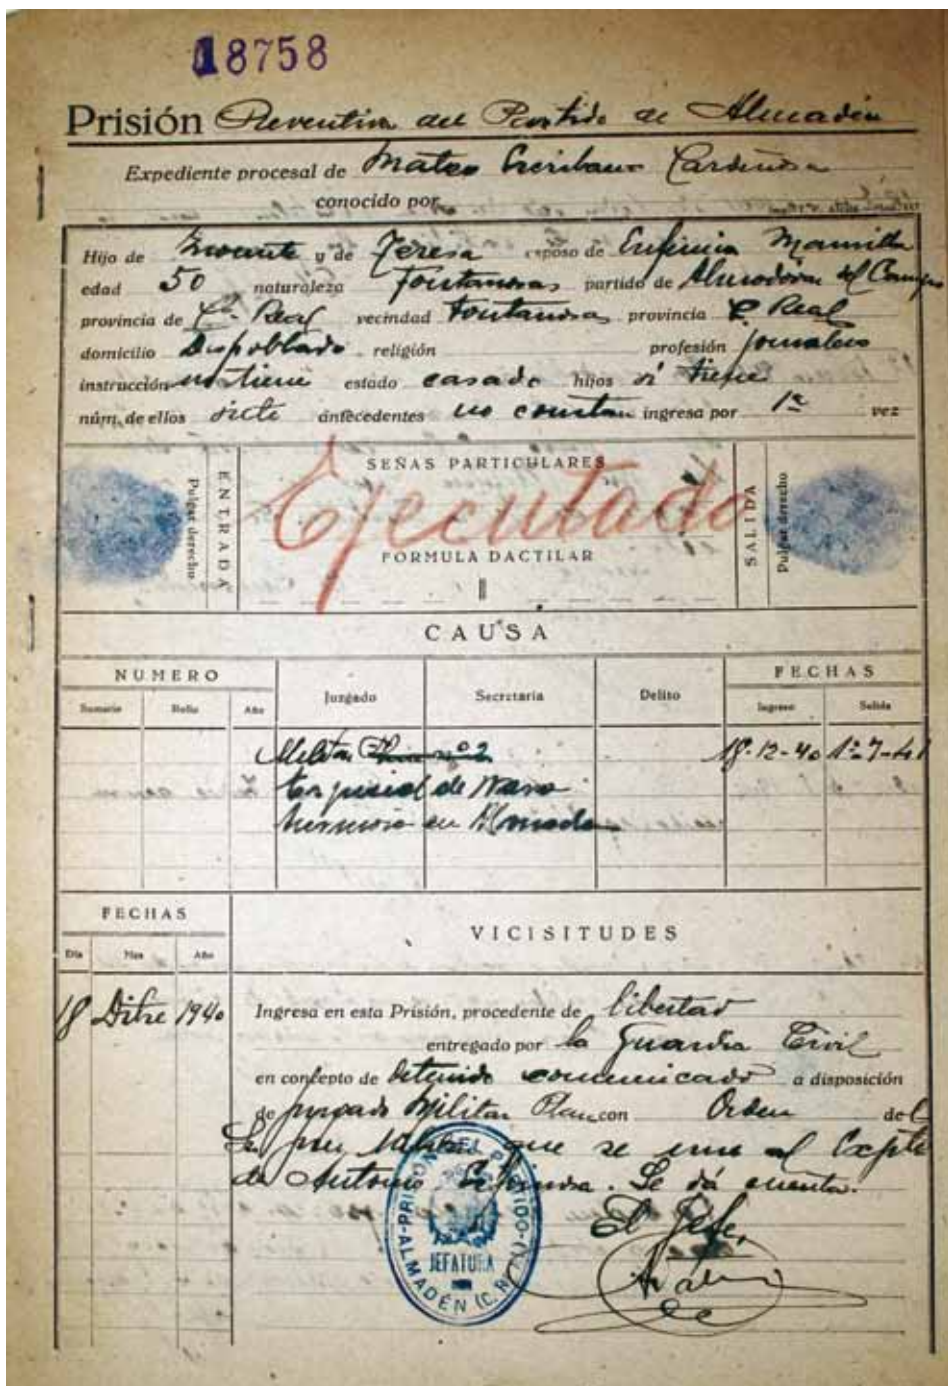 18758
Prisión Preventiva del Partido de Almadén
Expediente procesal de Mateo Escribano Cardeñosa
conocido por
Hijo de Inocente y de Teresa esposo de Eufemia Mansilla
edad 50 naturaleza Fontanosas partido de Almodovar del Campo
provincia de Cª Real vecindad Fontanosas provincia C. Real
domicilio Despoblado religión profesión jornalero
instrucción no tiene estado casado hijos si tiene
núm. de ellos siete antecedentes no constan ingresa por 1ª vez
ENTRADA
Pulgar derecho
SEÑAS PARTICULARES
Ejecutado
FORMULA DACTILAR
SALIDA
Pulgar derecho
CAUSA
NUMERO Juzgado Secretaría Delito FECHAS
Sumario Rollo Año Ingreso Salida
Militar nº 2 18-12-40 1º-7-41
especial de Nava
hermosa en Almaden
FECHAS VICISITUDES
Día Mes Año
18 Dibre 1940 Ingresa en esta Prisión, procedente de libertad
entregado por la Guardia Civil
en concepto de detenido comunicado a disposición
de juzgado Militar con Orden del
que se une al Expte
de Antonio. Se dá cuenta.
El Jefe,
PRISION DEL PARTIDO
JEFATURA
ALMADÉN (C. R.)